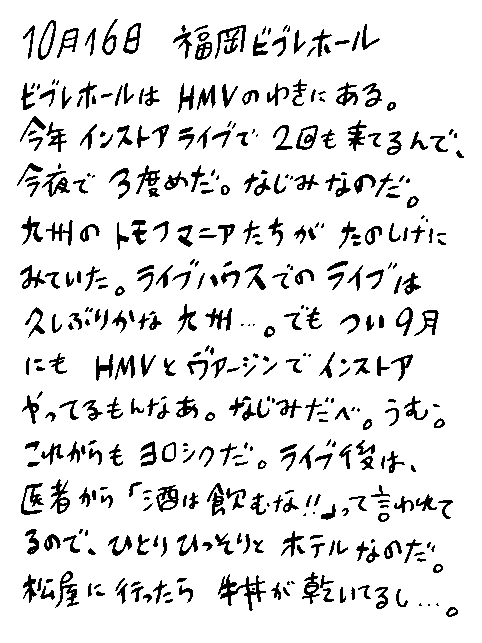 10月16日 福岡ビブレホール
ビブレホールは HMVのわきにある。
今年 インストアライブで 2回も来てるんで、
今夜で 3度めだ。なじみなのだ。
九州の トモフマニアたちが たのしげに
みていた。ライブハウスでのライブは
久しぶりかな 九州…。でも つい9月
にも HMVとヴァージンで インストア
やってるもんなあ。なじみだべ。うむ。
これからも ヨロシクだ。ライブ後は、
医者から「酒は飲むな!!」って言われて
るので、ひとりひっそりと ホテルなのだ。
松屋に行ったら 牛丼が 乾いてるし…。